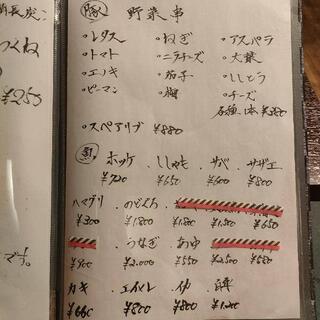 備長炭
つくね
¥250
です。
豚 野菜串
・レタス ・ねぎ ・アスパラ
・トマト ・ニラチーズ ・大葉
・エノキ ・茄子 ・ししとう
・ピーマン ・チーズ
各種1本 ¥380
・スペアリブ ¥880
ホッケ ・ししゃも ・サバ ・サザエ
¥720 ¥650 ¥600 ¥800
ハマグリ ・のどくろ
¥300 ¥1.800 ¥1.800 ¥1.500 ¥650
・うなぎ ・あゆ
¥900 ¥2.000 ¥550 ¥2.500 ¥580
カキ ・エイヒレ
¥660 ¥800 ¥800 ¥1.200